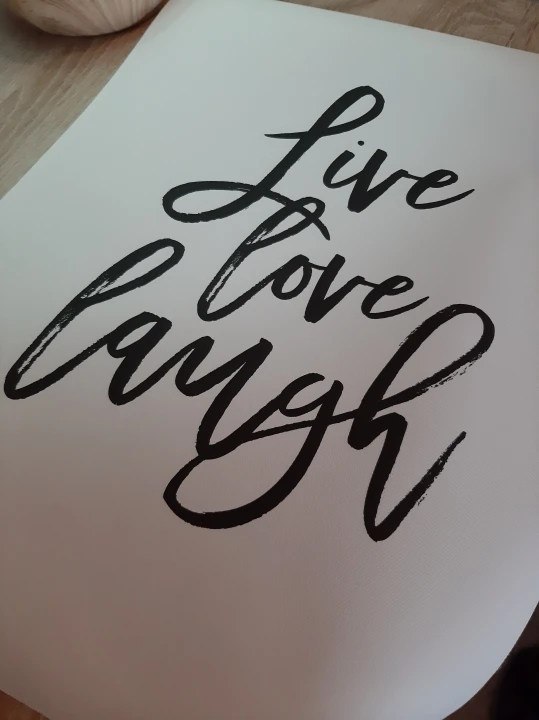 Live
love
laugh